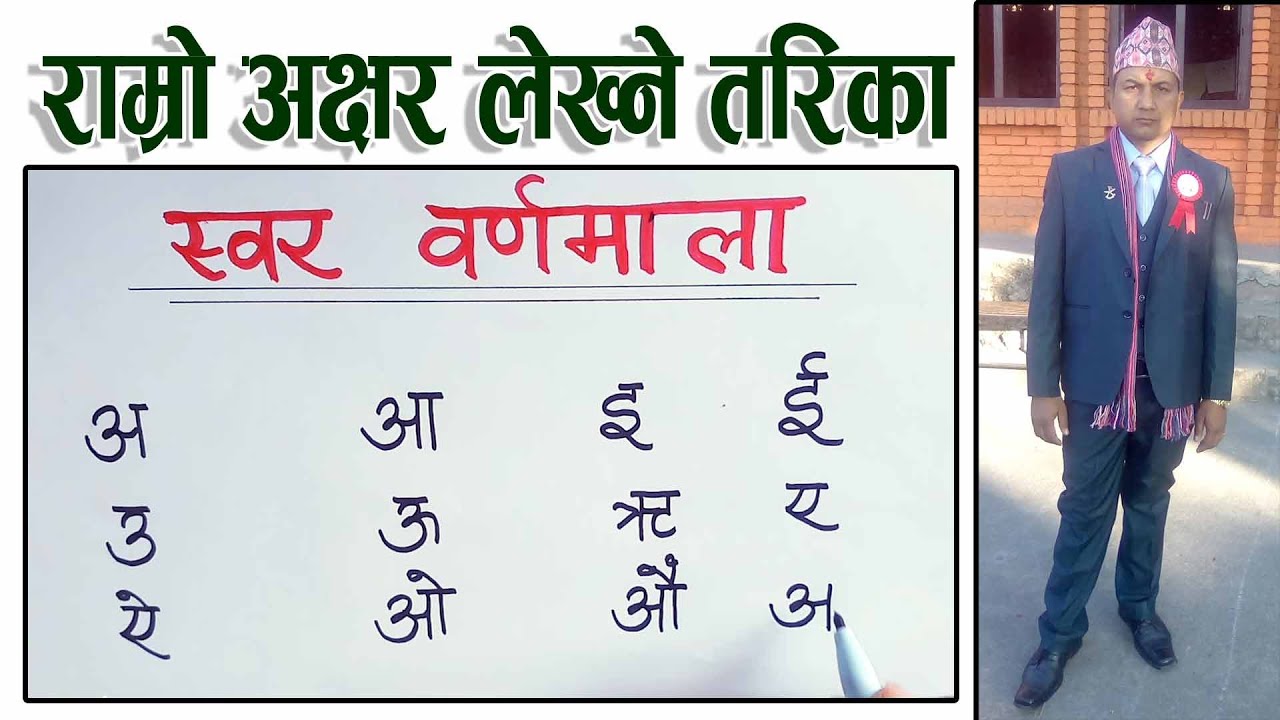 राम्रो अक्षर लेख्ने तरिका
स्वर वर्णमाला
अ आ इ ई
उ ऊ ऋ ए
ऐ ओ औ अ